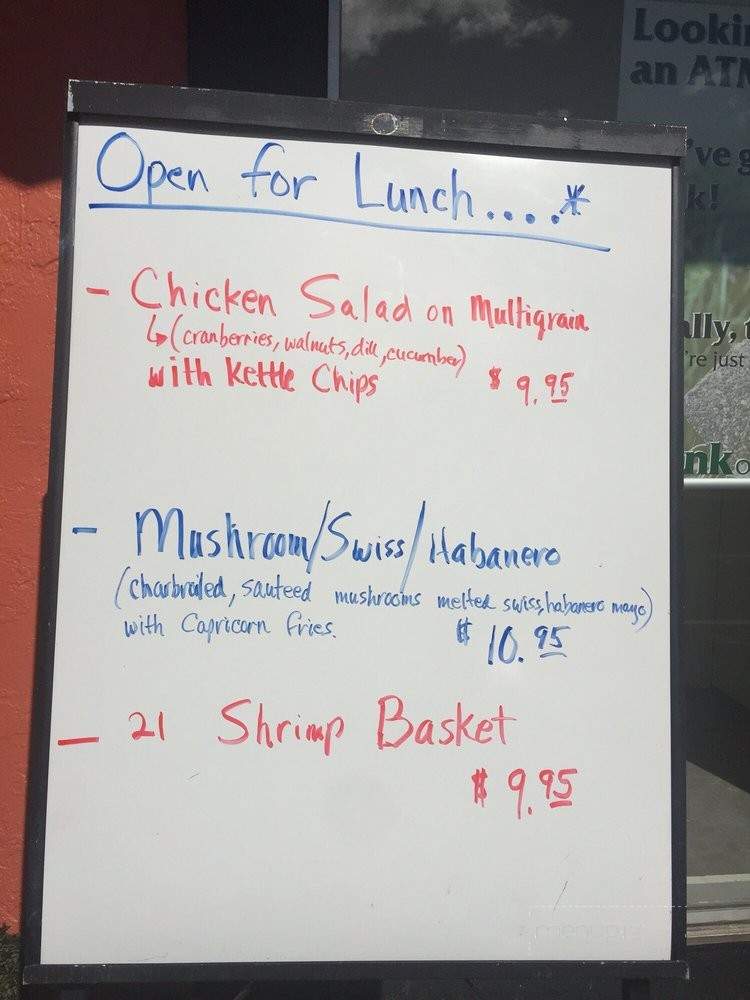 Open for Lunch....*
- Chicken Salad on Multigrain
↳(cranberries, walnuts, dill, cucumber)
with Kettle Chips $ 9.95
- Mushroom/Swiss/Habanero
(charbroiled, sauteed mushrooms melted swiss, habanero mayo)
with Capricorn fries. $ 10.95
- 21 Shrimp Basket
$ 9.95
Looki
an ATM
've g
k!
ally, t
're just
nk